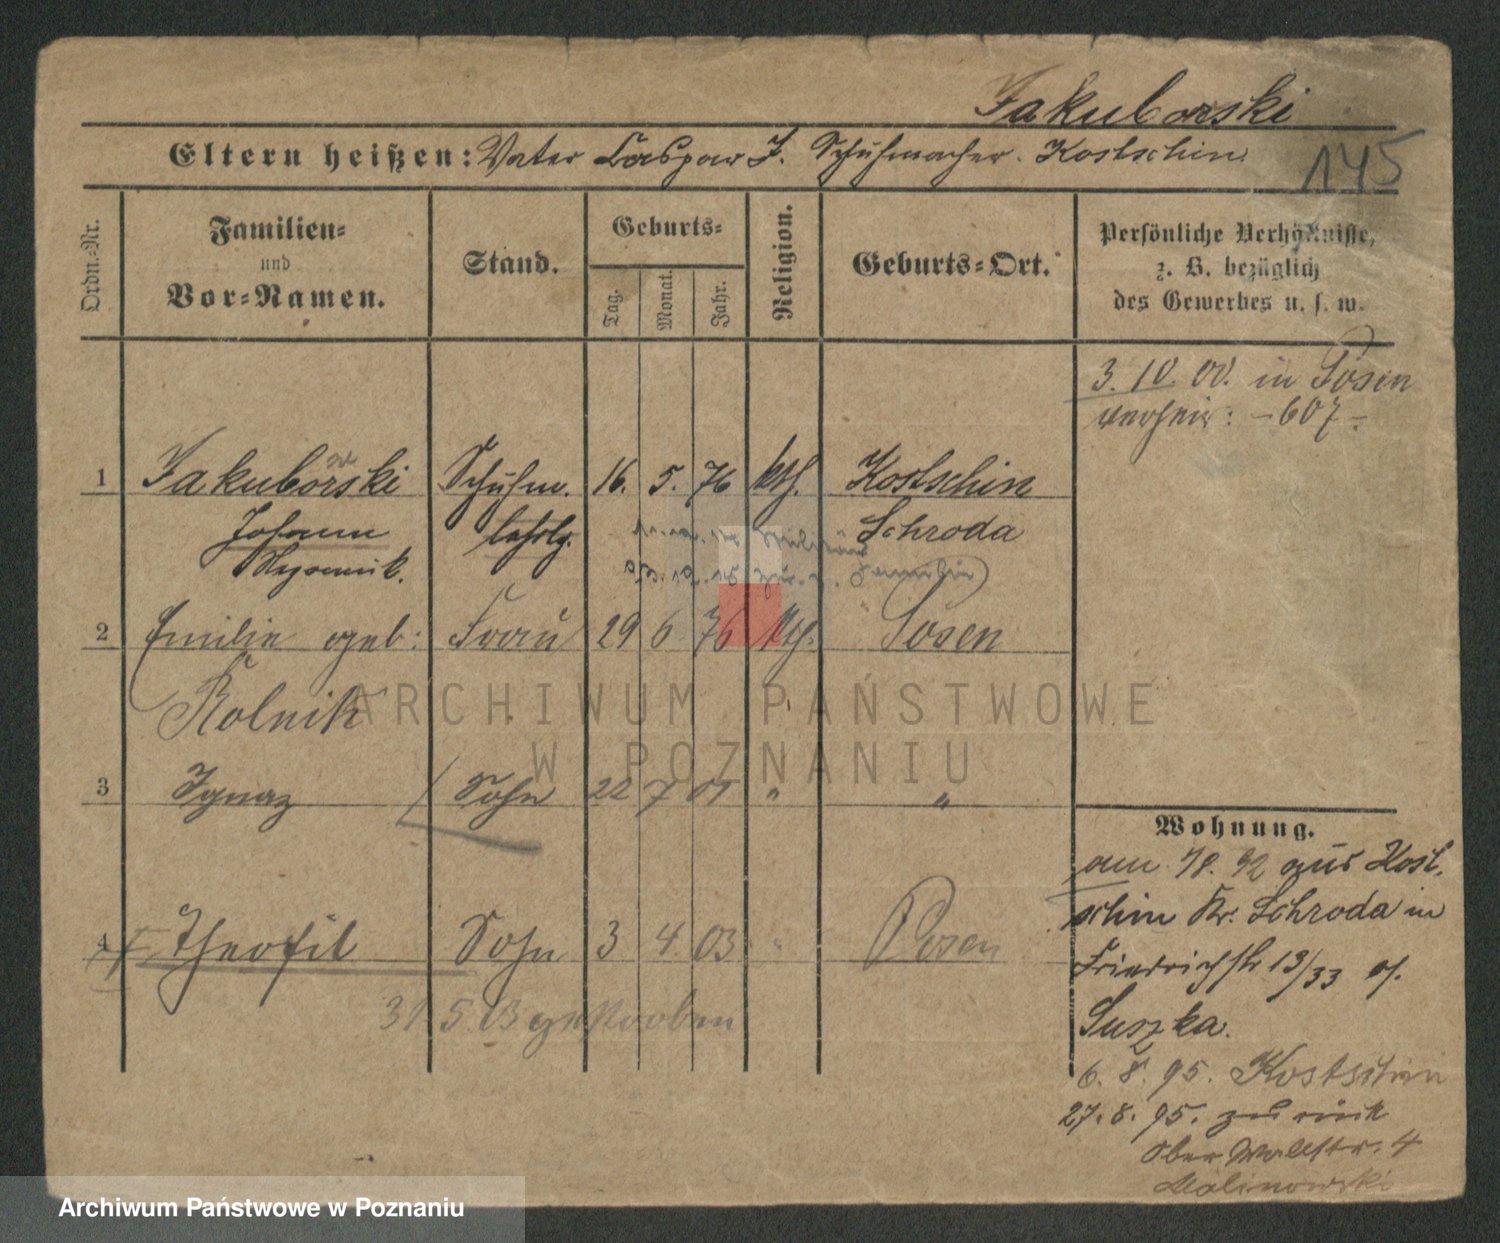 Jakuborski
Eltern heißen: Vater Caspar J. Schuhmacher. Kostschin
145
Ordn.-Nr.
Familien-
und
Vor-Namen.
Stand.
Geburts-
Tag.
Monat.
Jahr.
Religion.
Geburts-Ort.
Persönliche Verhältnisse,
z. B. bezüglich
des Gewerbes u. s. w.
3. 10. 00. in Posen
verheir: -607-
1 Jakuborski Schuhm. 16. 5. 76 kth. Kostschin
Johann lehrlg. Schroda
2 Emilie geb: Frau 29 6 76 kth. Posen
Rolnik
3 Ignaz Sohn 22 7 01 " "
4 Theofil Sohn 3 4 03 " Posen
31 5 03 gestorben
Wohnung.
am 7/8. 92 aus Kost-
schin Kr. Schroda in
Friedrichstr 13/33 bei
Suszka.
6. 8. 95. Kostschin
27. 8. 95. zurück
Ober Wallstr. 4
Malinowski
ARCHIWUM PAŃSTWOWE
W POZNANIU
Archiwum Państwowe w Poznaniu